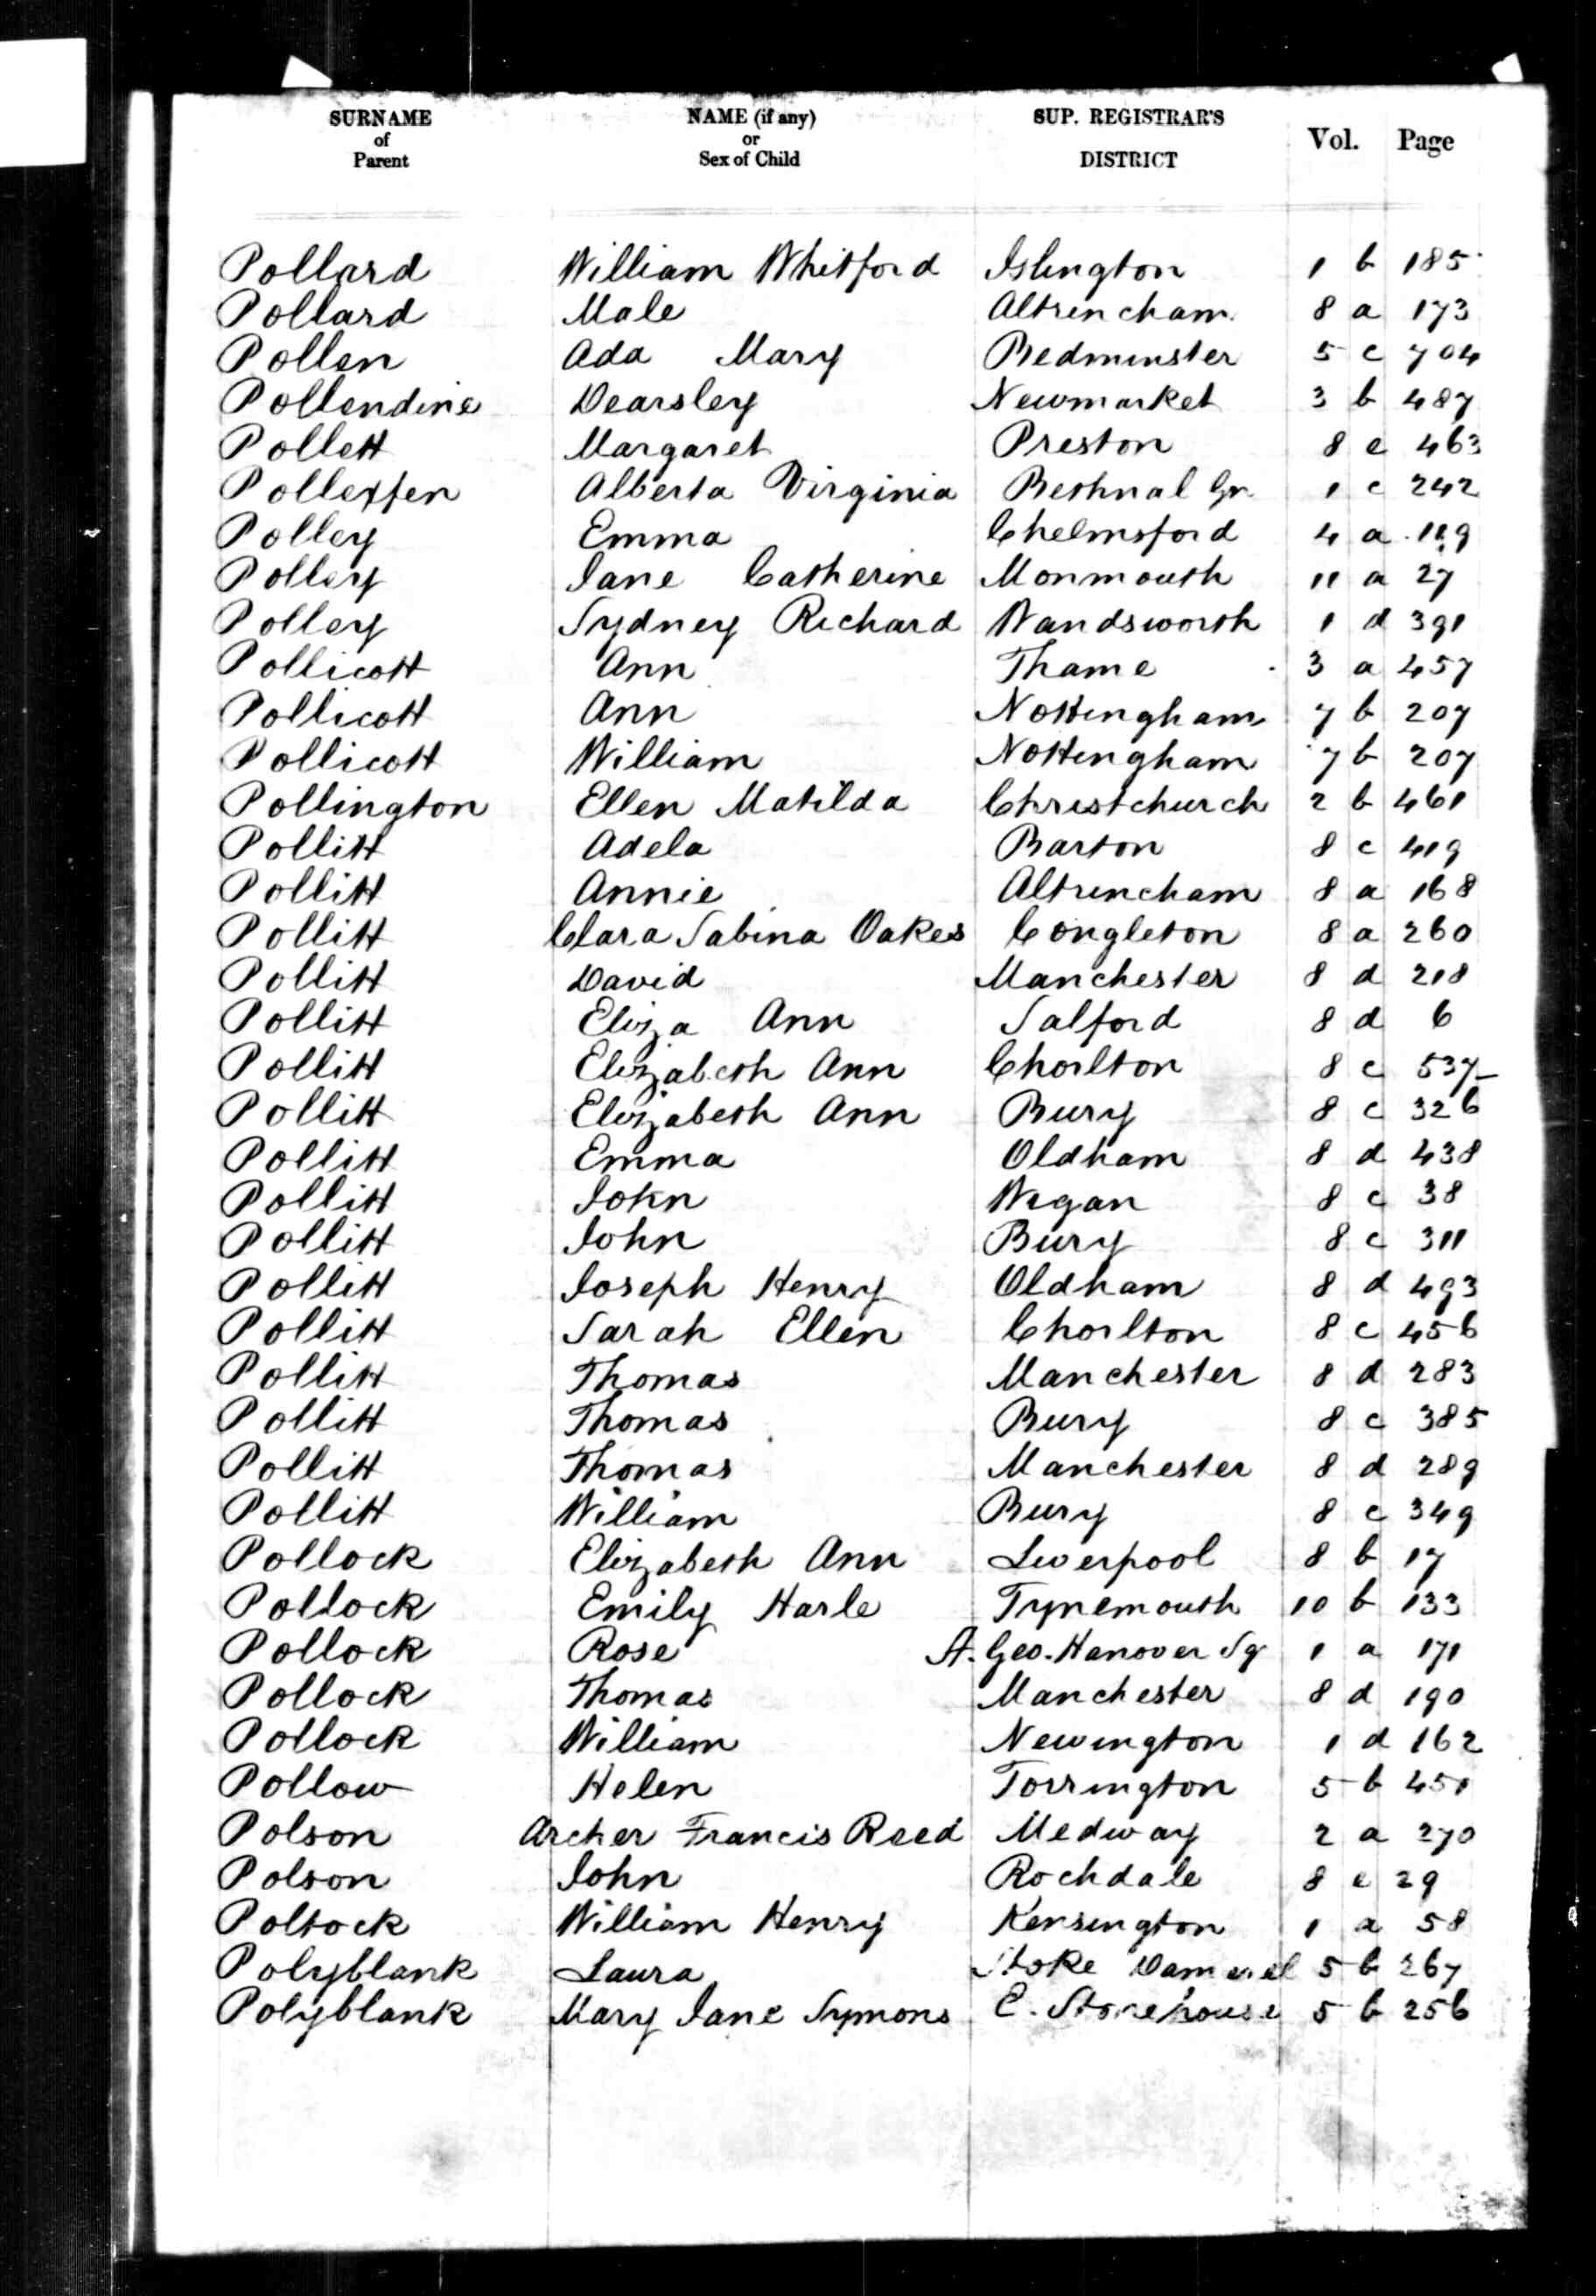 SURNAME of Parent NAME (if any) or Sex of Child SUP. REGISTRAR'S DISTRICT Vol. Page
Pollard William Whitford Islington 1 b 185
Pollard Male Altrincham 8 a 173
Pollen Ada Mary Bedminster 5 c 704
Pollendine Dearsley Newmarket 3 b 487
Pollett Margaret Preston 8 e 463
Pollexfen Alberta Virginia Bethnal Gn 1 c 242
Polley Emma Chelmsford 4 a 119
Polley Jane Catherine Monmouth 11 a 27
Polley Sydney Richard Wandsworth 1 d 391
Pollicott Ann Thame 3 a 457
Pollicott Ann Nottingham 7 b 207
Pollicott William Nottingham 7 b 207
Pollington Ellen Matilda Christchurch 2 b 461
Pollitt Adela Barton 8 c 419
Pollitt Annie Altrincham 8 a 168
Pollitt Clara Sabina Oakes Congleton 8 a 260
Pollitt David Manchester 8 d 218
Pollitt Eliza Ann Salford 8 d 6
Pollitt Elizabeth Ann Chorlton 8 c 537
Pollitt Elizabeth Ann Bury 8 c 326
Pollitt Emma Oldham 8 d 438
Pollitt John Wigan 8 c 38
Pollitt John Bury 8 c 311
Pollitt Joseph Henry Oldham 8 d 493
Pollitt Sarah Ellen Chorlton 8 c 456
Pollitt Thomas Manchester 8 d 283
Pollitt Thomas Bury 8 c 385
Pollitt Thomas Manchester 8 d 289
Pollitt William Bury 8 c 349
Pollock Elizabeth Ann Liverpool 8 b 17
Pollock Emily Harle Tynemouth 10 b 133
Pollock Rose St. Geo. Hanover Sq 1 a 171
Pollock Thomas Manchester 8 d 190
Pollock William Newington 1 d 162
Pollow Helen Torrington 5 b 451
Polson Archer Francis Reed Medway 2 a 270
Polson John Rochdale 8 e 29
Poltock William Henry Kensington 1 a 58
Polyblank Laura Stoke Damerel 5 b 267
Polyblank Mary Jane Symons E. Stonehouse 5 b 256